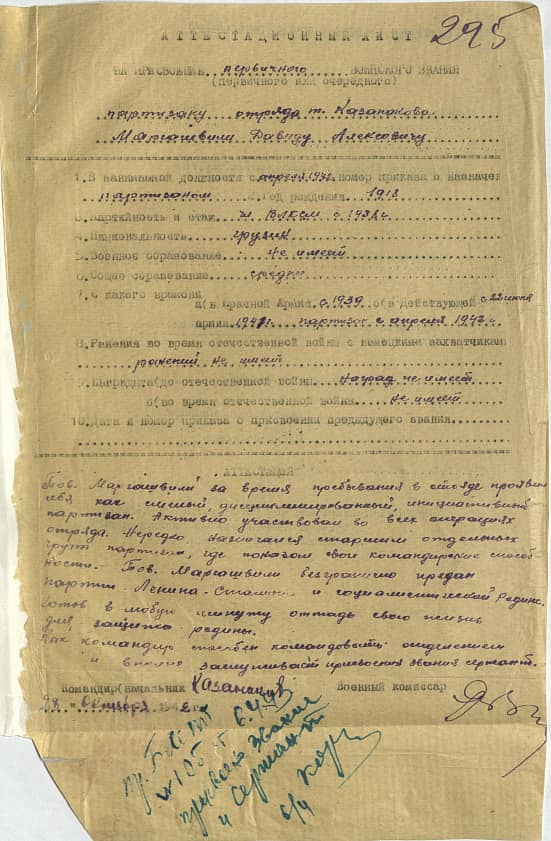 295
АТТЕСТАЦИОННЫЙ ЛИСТ
НА ПРИСВОЕНИЕ первичного ВОИНСКОГО ЗВАНИЯ
(первичного или очередного)
партизану отряда т. Казанокова
Маргашвили Давиду Алексовичу
1. В занимаемой должности с апреля 1942 Номер приказа о назначен
партизаном 2. Год рождения 1918
3. Партийность и стаж чл ВЛКСМ с 1938 г
4. Национальность грузин
5. Военное образование не имеет
6. Общее образование средн
7. С какого времени
а) в Красной Армии с 1939 б) в действующей с 22 июня
армии 1941 г партизан с апреля 1942 г
8. Ранения во время отечественной войны с немецкими захватчикам
ранений не имеет
9. Награды: а) до отечественной войны наград не имеет
б) во время отечественной войны не имеет
10. Дата и номер приказа о присвоении предыдущего звания
АТТЕСТАЦИЯ
Тов. Маргашвили за время пребывания в отряде проявил
себя как смелый, дисциплинированный, инициативный
партизан. Активно участвовал во всех операциях
отряда. Нередко назначался старшим отдельных
групп партизан, где показал свои командирские способ-
ности. Тов. Маргашвили безгранично предан
партии Ленина-Сталина и социалистической родине.
Готов в любую минуту отдать свою жизнь
для защиты родины.
Как командир способен командовать отделением
и вполне заслуживает присвоения звания сержант.
Командир (начальник Казаноков Военный комиссар
28 " Октября 1942 г.
пр. БШПД
№ 10 от 6.4.43
присвоено звание
сержант